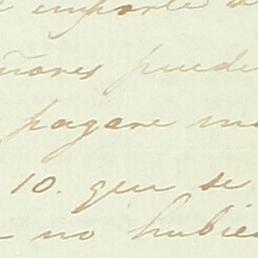 importe
puede
pagare
10. que se
no hubie